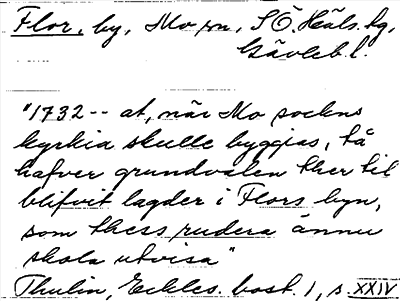 Flor, by, Mo sn, SÖ. Häls. hg,
Gävleb. l.
"1732 -- at, när Mo sockens
kyrkia skulle byggias, så
hafver grundvalen ther til
blifvit lagder i Flors byn,
som thess rudera ännu
skola utvisa"
Thulin, Eckles. bost. 1, s. XXIV